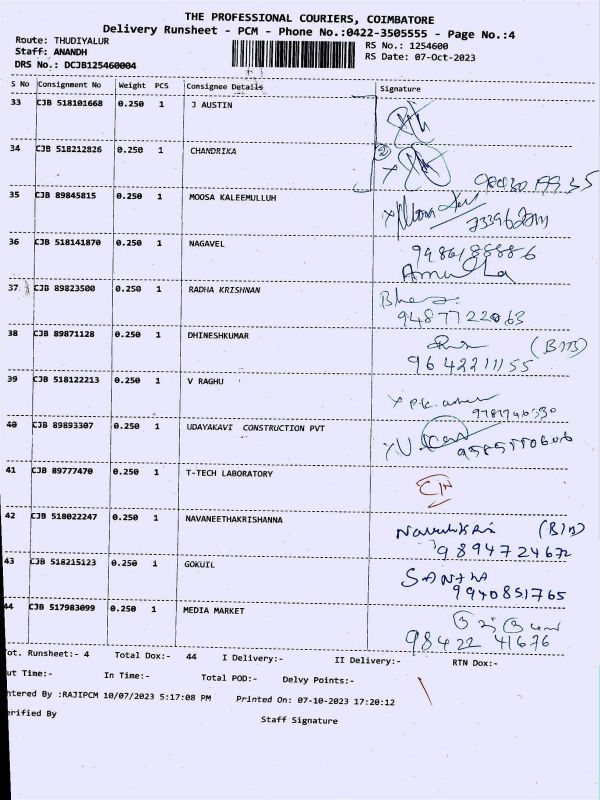 THE PROFESSIONAL COURIERS, COIMBATORE
Delivery Runsheet - PCM - Phone No.:0422-3505555 - Page No.:4
Route: THUDIYALUR
Staff: ANANDH
DRS No.: DCJB125460004
RS No.: 1254600
RS Date: 07-Oct-2023
S No Consignment No Weight PCS Consignee Details Signature
33 CJB 518101668 0.250 1 J AUSTIN
34 CJB 518212826 0.250 1 CHANDRIKA
35 CJB 89845815 0.250 1 MOOSA KALEEMULLUH
36 CJB 518141870 0.250 1 NAGAVEL
Amutha
37 CJB 89823500 0.250 1 RADHA KRISHNAN
9487722063
38 CJB 89871128 0.250 1 DHINESHKUMAR
9642211155
39 CJB 518122213 0.250 1 V RAGHU
40 CJB 89893307 0.250 1 UDAYAKAVI CONSTRUCTION PVT
41 CJB 89777470 0.250 1 T-TECH LABORATORY
42 CJB 518022247 0.250 1 NAVANEETHAKRISHANNA
9894724672
43 CJB 518215123 0.250 1 GOKUIL
SANTHA
9940851765
44 CJB 517983099 0.250 1 MEDIA MARKET
98422 41676
Tot. Runsheet:- 4 Total Dox:- 44 I Delivery:- II Delivery:- RTN Dox:-
ut Time:- In Time:- Total POD:- Delvy Points:-
ntered By :RAJIPCM 10/07/2023 5:17:08 PM Printed On: 07-10-2023 17:20:12
erified By Staff Signature